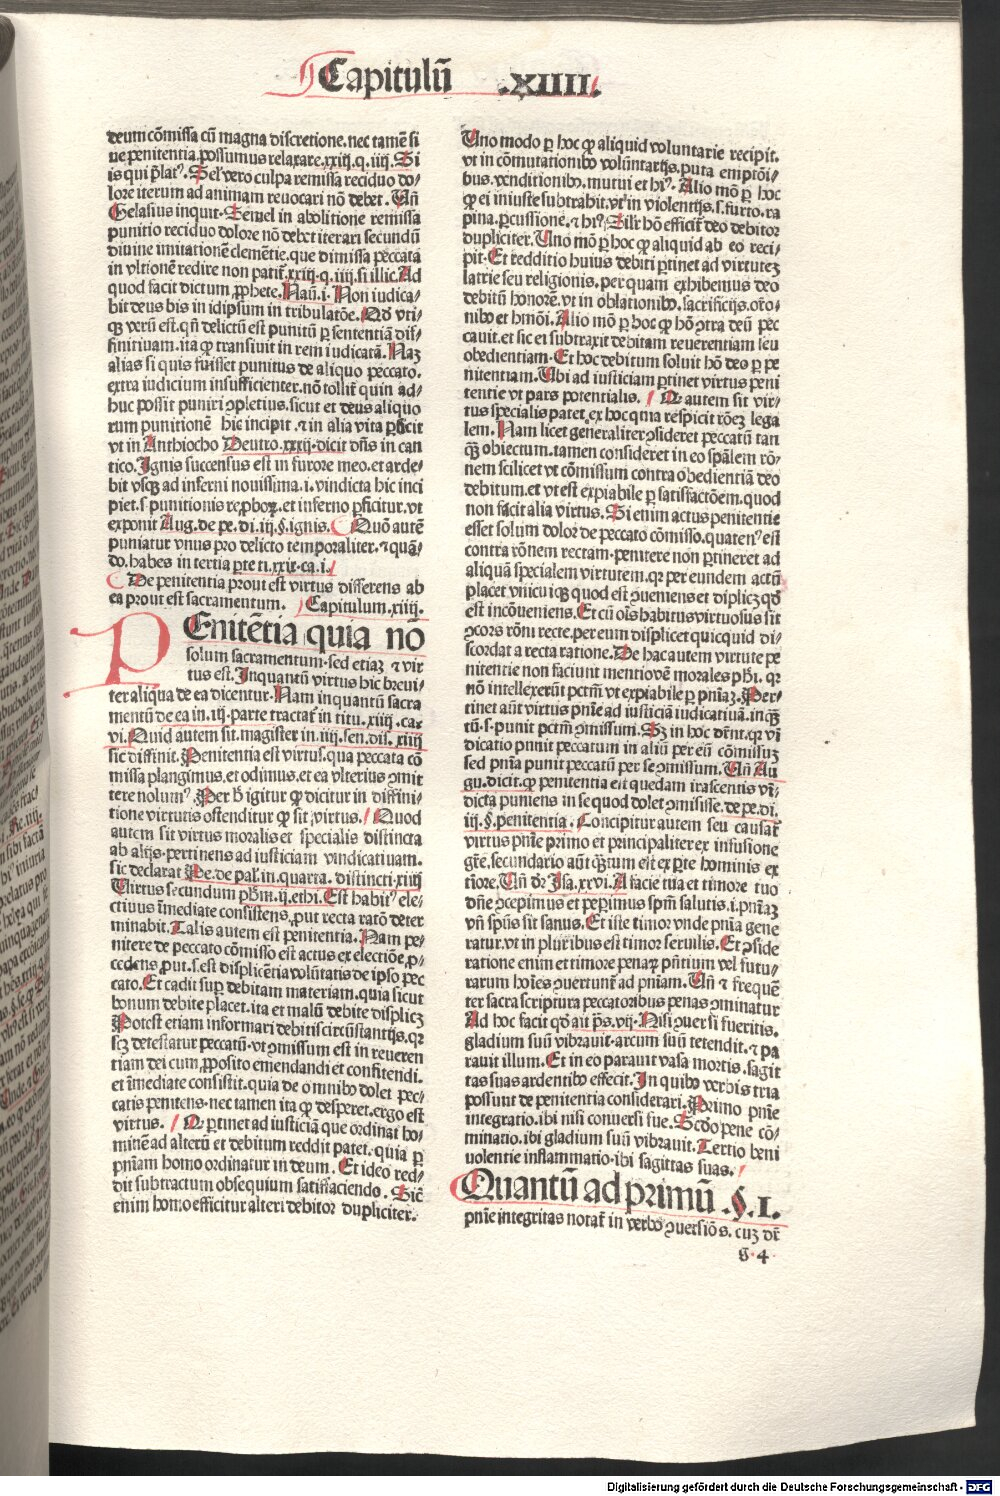 Capitulū .XIIII.
deum cōmissa cū magna discretione. nec tamē si
ue penitentia possumus relaxare. xxiij. q. iiij. Si
is qui plat⁹. Sel vero culpa remissa reciduo do/
lore iterum ad animam reuocari nō debet. Uñ
Gelasius inquit. Semel in abolitione remissa
punitio reciduo dolore nō debet iterari secundū
diuine imitationē clemētie. que dimissa peccata
in vltionē redire non patit̄. xxiij. q. iiij. si illic. Ad
quod facit dictum ꝓphete. Naū. i. Non iudica/
bit deus bis in idipsum in tribulatōe. Qd̄ vti/
qꝫ verū est. qñ delictū est punitū ꝑ sententiā dif/
finitiuam. ita ꝙ transiuit in rem iudicatā. Naꝫ
alias si quis fuisset punitus de aliquo peccato.
extra iudicium insufficienter. nō tollit̄ quin ad/
huc possit puniri ꝯpletius. sicut et deus aliquo
rum punitionē hic incipit. ⁊ in alia vita ꝑficit
vt in Anthiocho Deutro. xxxij. dicit dñs in can
tico. Ignis succensus est in furore meo. et arde/
bit vsqꝫ ad inferni nouissima. i. vindicta hic inci
piet. s. punitionis reꝓboꝝ. et inferno ꝑficitur. vt
exponit Aug. de pe. di. iij. §. ignis. Quō autē
puniatur vnus pro delicto temporaliter. ⁊ quā/
do. habes in tertia ꝑte ti. xxix. ca. i.
De penitentia prout est virtus differens ab
ea prout est sacramentum. Capitulum. xiiij.
PEnitētia quia nō
solum sacramentum. sed etiaꝫ ⁊ vir
tus est. Inquantū virtus hic breui/
ter aliqua de ea dicentur. Nam inquantū sacra
mentū de ea in. iij. parte tractat̄ in titu. xiiij. ca.
vi. Quid autem sit. magister in. iiij. sen. dis. xiiij
sic diffinit. Penitentia est virtus. qua peccata cō
missa plangimus. et odimus. et ea vlterius ꝯmit
tere nolum⁹. Per h̄ igitur ꝙ dicitur in diffini/
tione virtutis ostenditur ꝙ sit virtus. Quod
autem sit virtus moralis et specialis distincta
ab alijs. pertinens ad iusticiam vindicatiuam.
sic declarat Pe. de pal. in. quarta. distincti. xiiij
Uirtus secundum pħm. ij. ethi. Est habit⁹ ele/
ctiuus īmediate consistens. put recta ratō deter
minabit. Talis autem est penitentia. Nam pe/
nitere de peccato cōmisso est actus ex electiōe. ꝓ/
cedens put. s. est displicētia volūtatis de ipso pec
cato. Et cadit suꝑ debitam materiam. quia sicut
bonum debite placet. ita et malū debite displicꝫ
Potest etiam informari debitis circūstantijs. qꝛ
scꝫ detestatur peccatū. vt ꝯmissum est in reueren
tiam dei cum ꝓposito emendandi et confitendi.
et īmediate consistit. quia de omnibo dolet pec/
catis penitens. nec tamen ita ꝙ desperet. ergo est
virtus. Qꝛ ꝑtinet ad iusticiā que ordinat ho/
minē ad alterū et debitum reddit patet. quia ꝑ
pñiam homo ordinatur in deum. Et ideo red/
dit subtractum obsequium satisfaciendo. Sicē
enim homo efficitur alteri debitor dupliciter.
Uno modo ꝑ hoc ꝙ aliquid voluntarie recipit.
vt in cōmutationibꝰ volūntarijs. puta emptōi/
bus. venditionibꝰ. mutui et hi⁹. Alio mō ꝑ hoc
ꝙ ei iniuste subtrahit. vt in violentijs. s. furto. ra
pina. ꝑcussione. ⁊ hi⁹. Silr̄ hō efficit̄ deo debitor
dupliciter. Uno mō ꝑ hoc ꝙ aliquid ab eo reci/
pit. Et redditio huius debiti ꝑtinet ad virtuteꝫ
latrie seu religionis. per quam exhibemus deo
debitū honorē. vt in oblationibꝰ. sacrificijs. orō/
nibꝰ et hmōi. Alio mō ꝑ hoc ꝙ hō ꝯtra deū pec
cauit. et sic ei subtraxit debitam reuerentiam seu
obedientiam. Et hoc debitum soluit hō deo ꝑ pe
nitentiam. Ubi ad iusticiam ꝑtinet virtus peni
tentie vt pars potentialis. Qꝛ autem sit vir/
tus specialis patet. ex hoc quia respicit rōeꝫ lega
lem. Nam licet generaliter ꝯsideret peccatū tan
qꝫ obiectum. tamen consideret in eo spālem rō/
nem scilicet vt cōmissum contra obedientiā deo
debitum. et vt est expiabile ꝑ satisfactōem. quod
non facit alia virtus. Si enim actus penitentie
esset solum dolor de peccato cōmisso. quaten⁹ est
contra rōnem rectam. penitere non ꝑtineret ad
aliquā specialem virtutem. qꝛ per eundem actū
placet vnicuiqꝫ quod est ꝯueniens et diplicꝫ qd̄
est incōueniens. Et cū oīs habitus virtuosus sit
ꝯcors rōni recte. per eum displicet quicquid di/
scordat a recta ratione. De hac autem virtute pe
nitentie non faciunt mentionē morales pħi. qꝛ
nō intellexerūt pctm̄ vt expiabile ꝑ pñiaꝫ. Per/
tinet aūt virtus pnīe ad iusticiā iudicatiuā. inqꝫ
tū. s. punit pctm̄ ꝯmissum. Sꝫ in hoc dr̄nt. qꝛ vī
dicatio punit peccatum in aliū per eū cōmissuꝫ
sed pnīa punit peccatū per se ꝯmissum. Uñ Au
gu. dicit. ꝙ penitentia est quedam irascentis vī/
dicta puniens in se quod dolet ꝯmisisse. de pe. di.
iij. §. penitentia. Concipitur autem seu causat̄
virtus pnīe primo et principaliter ex infusione
gr̄e. secundario aūt qꝫtum est ex ꝑte hominis ex
tiōre. Uñ dr̄ Isa. xxvi. A facie tua et timore tuo
dñe ꝯcepimus et peperimus spm̄ salutis. i. pñiaꝫ
vñ spūs sit sanus. Et iste timor vnde pñia gene
ratur. vt in pluribus est timor seruilis. Et ꝯside
ratione enim et timore penaꝝ pñtium vel futu/
rarum hoīes ꝯuertunt̄ ad pñiam. Uñ ⁊ frequē
ter sacra scriptura peccatoribus penas ꝯminatur
Ad hoc facit qd̄ ait p̄s. vij. Nisi ꝯuersi fueritis.
gladium suū vibrauit. arcum suū tetendit. ⁊ pa
rauit illum. Et in eo parauit vasa mortis. sagit
tas suas ardentibꝰ effecit. In quibꝰ verbis tria
possunt de penitentia considerari. Primo pnīe
integratio. ibi nisi conuersi fue. Scd̄o pene cō/
minatio. ibi gladium suū vibrauit. Tertio beni
uolentie inflammatio. ibi sagittas suas.
Quantū ad primū .§. I.
pnīe integritas notat̄ in verbo ꝯuersiōs. cuꝫ dr̄
g 4
Digitalisierung gefördert durch die Deutsche Forschungsgemeinschaft - DFG